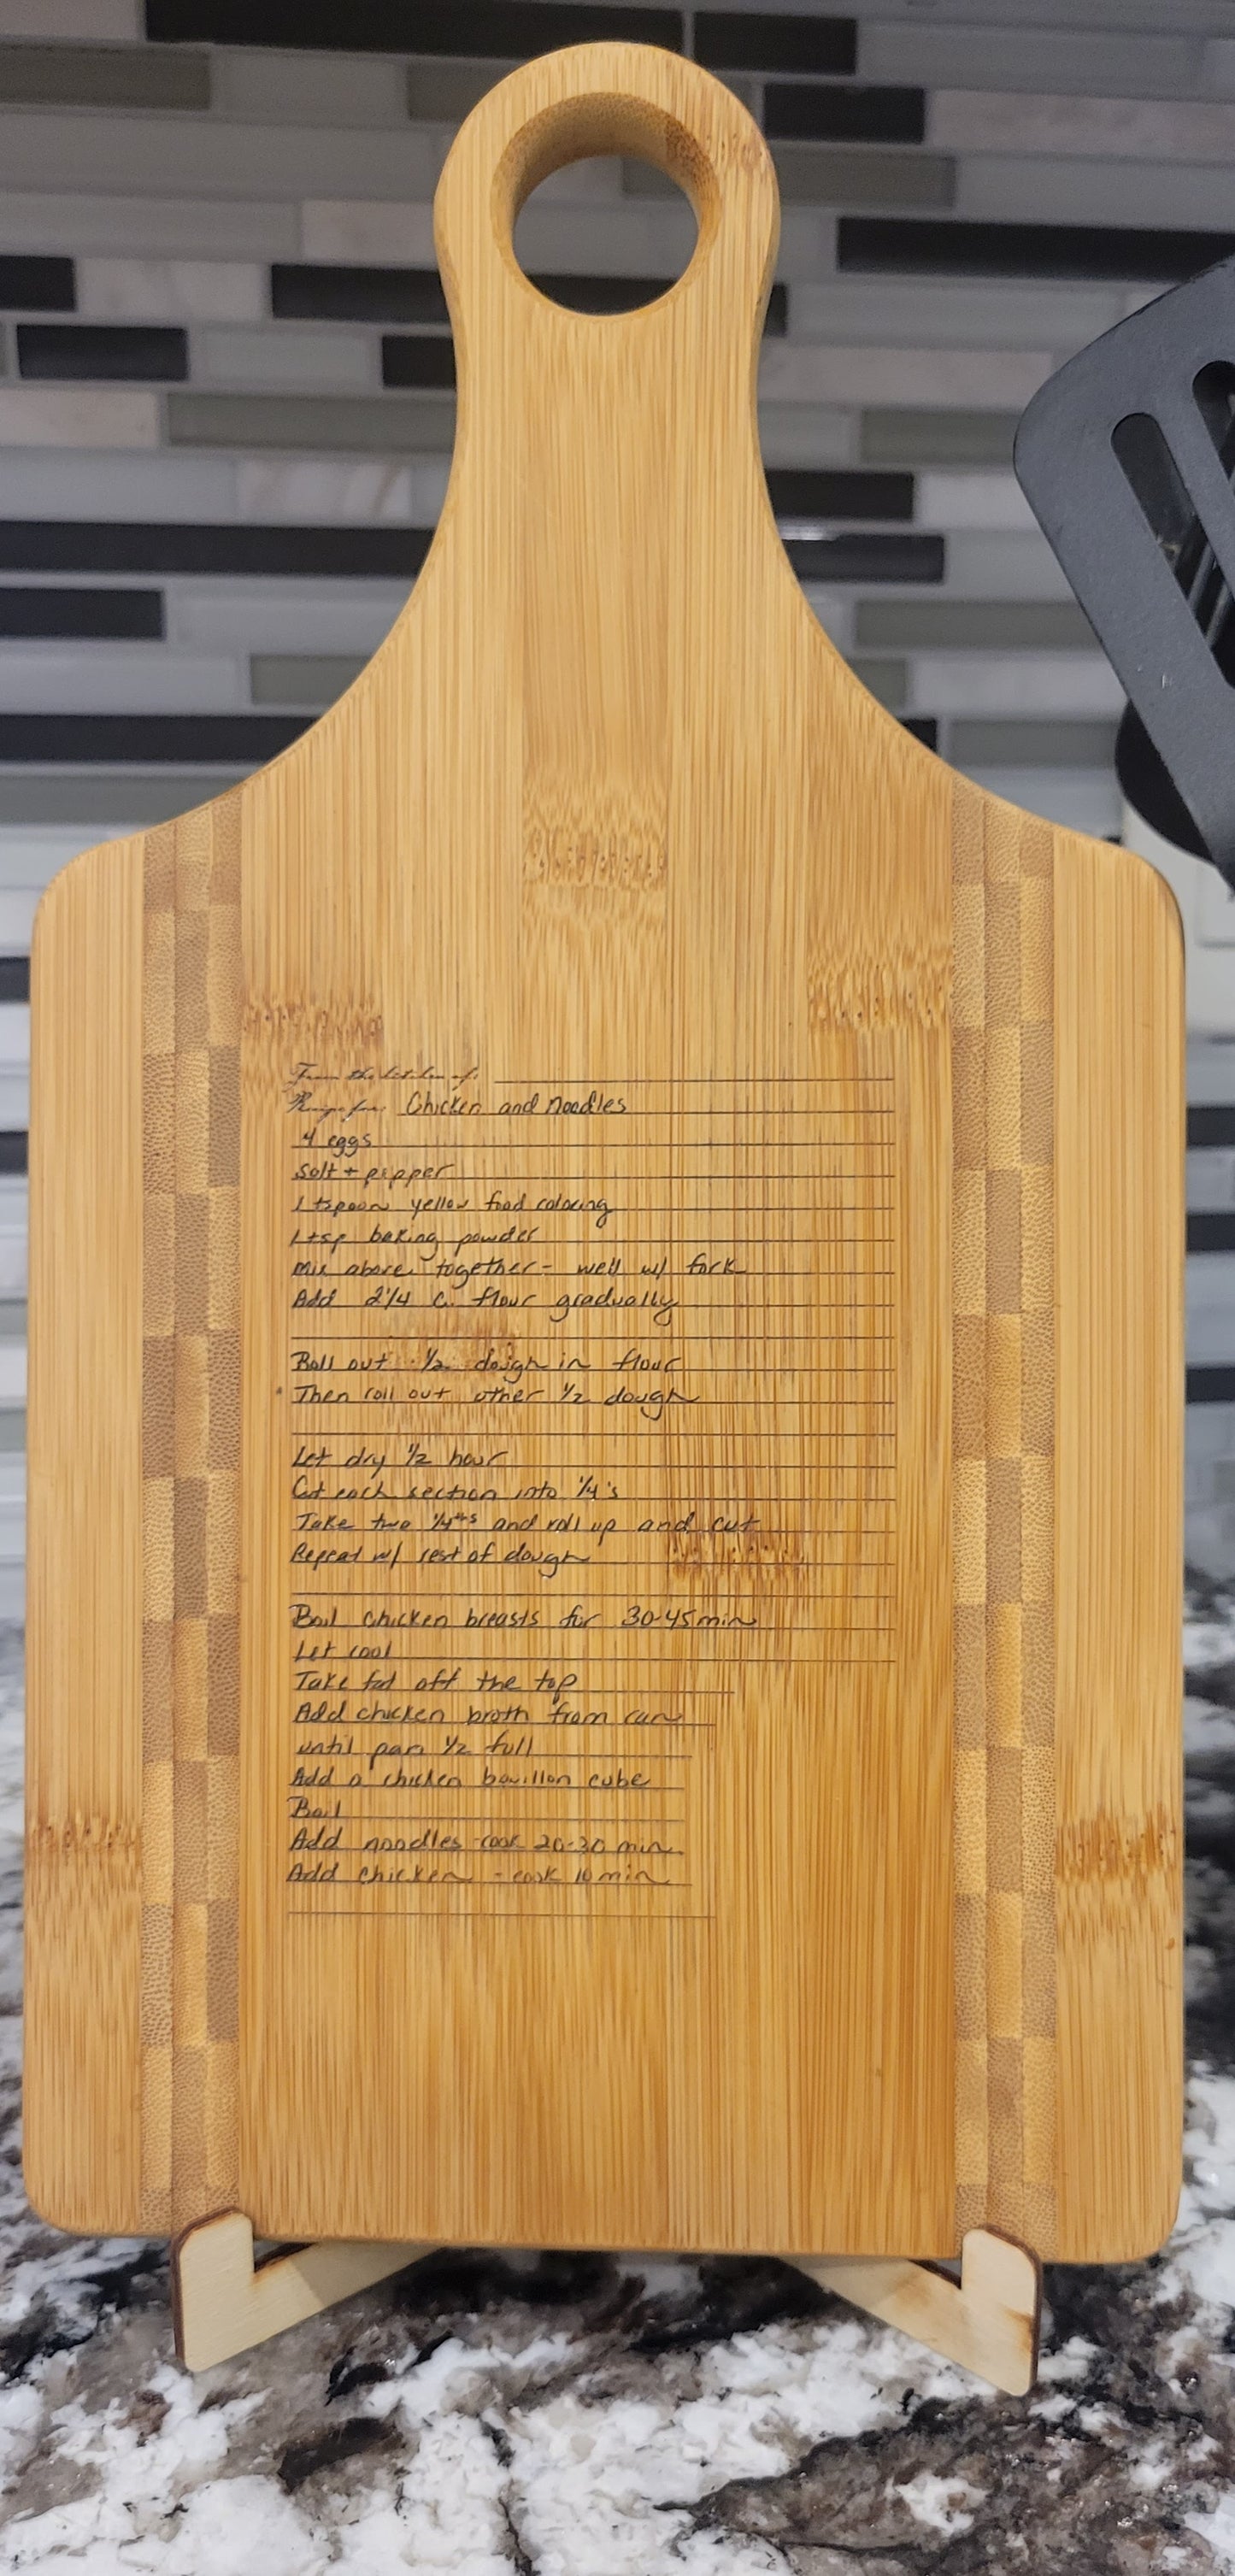 From the kitchen of:
Recipe for: Chicken and Noodles
4 eggs
Salt + pepper
1 tspoon yellow food coloring
1 tsp baking powder
mix above together - well w/ fork
Add 2 1/4 c. flour gradually
Roll out 1/2 dough in flour
Then roll out other 1/2 dough
Let dry 1/2 hour
Cut each section into 1/4's
Take two 1/4ths and roll up and cut
Repeat w/ rest of dough
Boil chicken breasts for 30-45 min
Let cool
Take fat off the top
Add chicken broth from can
until pan 1/2 full
Add a chicken bouillon cube
Boil
Add noodles - cook 20-30 min.
Add chicken - cook 10 min.